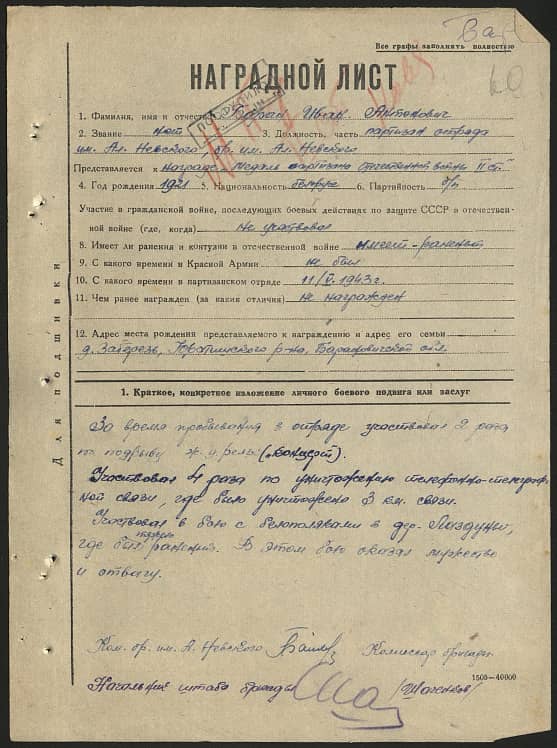 Все графы заполнять полностью
НАГРАДНОЙ ЛИСТ
1. Фамилия, имя и отчество Иван Антонович
2. Звание 3. Должность, часть партизан отряда
им. Ал. Невского бр. им. Ал. Невского
Представляется к награде медаль партизана отечественной войны II ст."
4. Год рождения 1921 5. Национальность белорус 6. Партийность б/п
Участие в гражданской войне, последующих боевых действиях по защите СССР в отечествен-
ной войне (где, когда) не участвовал
8. Имеет ли ранения и контузии в отечественной войне имеет - раненый
9. С какого времени в Красной Армии не был
10. С какого времени в партизанском отряде 11/V. 1943 г.
11. Чем ранее награжден (за какия отличия) не награжден
12. Адрес места рождения представляемого к награждению и адрес его семьи
д. р-на, Барановичской обл.
Для подшивки
1. Краткое, конкретное изложение личного боевого подвига или заслуг
За время пребывания в отряде участвовал 2 раза
по подрыву ж.д. рельс ("концерт").
Участвовал 4 раза по уничтожению телефонно-телеграф-
ной связи, где было уничтожено 3 км. связи.
Участвовал в бою с белополяками в дер. Лаздуны,
где был тяжело ранений. В этом бою оказал мужество
и отвагу.
Ком. бр. им. А. Невского Комиссар бригады
1500—40000
Начальник штаба бригады